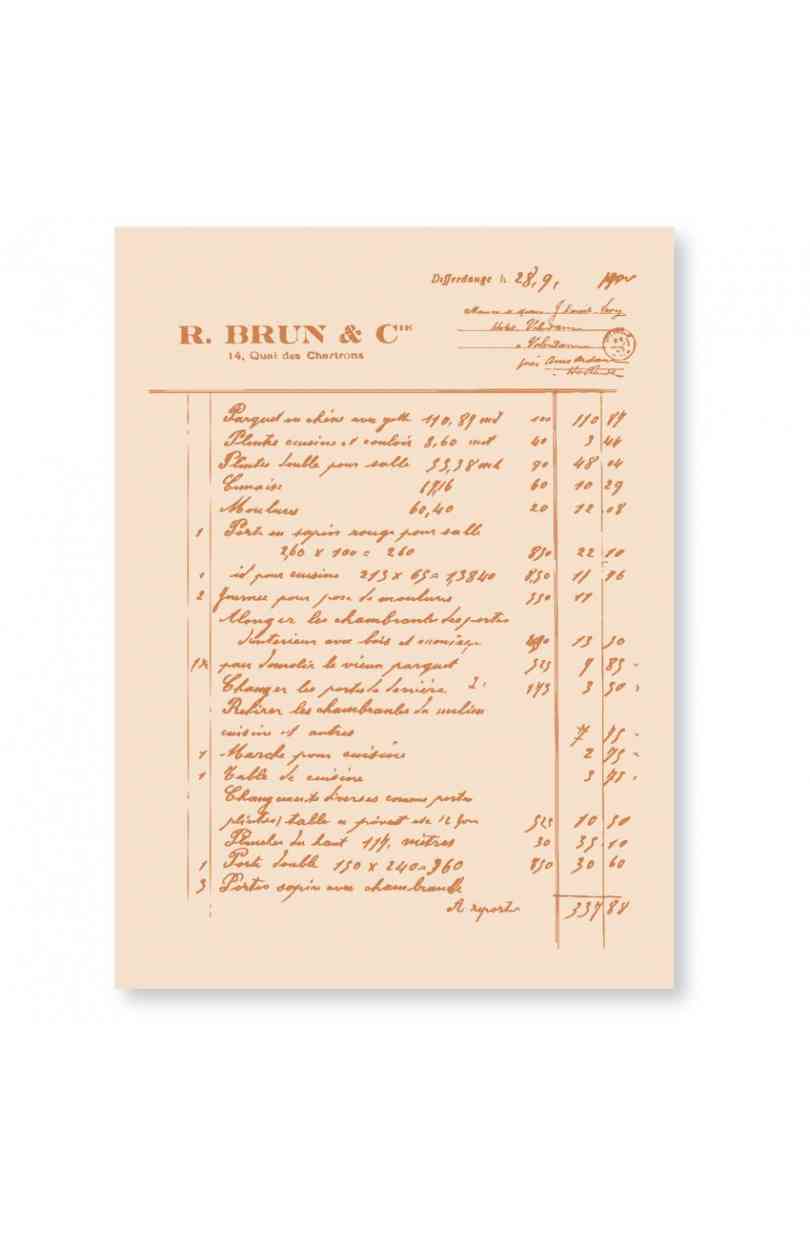 Differdange le 28, 9,
R. BRUN & Cie
14, Quai des Chartrons
Volendam
à Volendam
près Amsterdam
Hollande
Parquet en chêne avec 110,89 100 110 87
Plintes cuisine et couloir 8,60 40 3 44
Plintes double pour salle 53,38 90 48 04
Cimaise 60 10 29
Moulures 60,40 20 12 08
1 Porte en sapin rouge pour salle
2,60 x 100 = 260 850 22 10
1 id pour cuisine 213 x 65 = 1,3840 850 11 76
2 Journée pour pose de moulures 550
Alonger les chambrantes des portes
d'interieur avec bois et 13 50
pour demolir le vieux parquet 525
Changer les portes de derrière 2. 175 3 50
Retirer les chambrantes du milieu
cuisine et autres 7 75
1 Marche pour cuisine 2 75
1 Table de cuisine 3 75
Changements diverses comme portes
plintes, table 525 10 50
Planches du haut 117, mètres 30 35 10
1 Porte double 150 x 240 = 360 850 30 60
3 Portes sapin avec chambrantle
A reporter 337 88